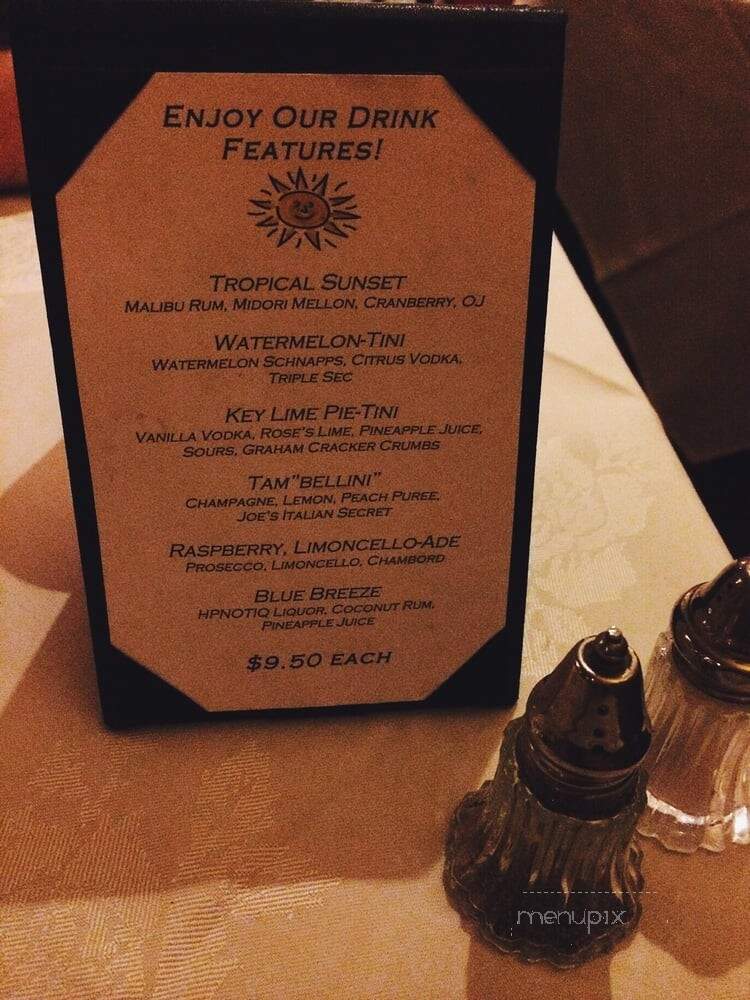 Enjoy Our Drink
Features!
Tropical Sunset
Malibu Rum, Midori Mellon, Cranberry, OJ
Watermelon-Tini
Watermelon Schnapps, Citrus Vodka,
Triple Sec
Key Lime Pie-Tini
Vanilla Vodka, Rose's Lime, Pineapple Juice,
Sours, Graham Cracker Crumbs
Tam"Bellini"
Champagne, Lemon, Peach Puree,
Joe's Italian Secret
Raspberry, Limoncello-Ade
Prosecco, Limoncello, Chambord
Blue Breeze
HPNOTIQ Liquor, Coconut Rum,
Pineapple Juice
$9.50 each
menupix